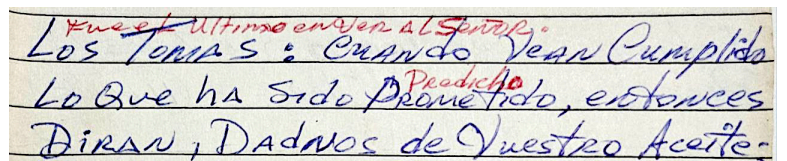 Fue el Ultimo en Ver AL Señor.
Los Tomas: Cuando Vean Cumplido
Lo Que ha Sido Prometido, entonces
Predicho
DIRAN, DADNOS de Vuestro Aceite.